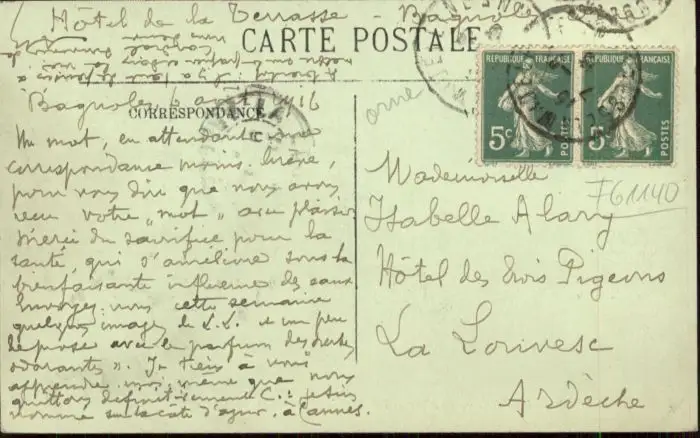 Hôtel de la Terrasse - Bagnoles
CARTE POSTALE
CORRESPONDANCE
RÉPUBLIQUE FRANÇAISE
5c
RÉPUBLIQUE FRANÇAISE
5c
orne
Bagnoles, 6 août 1916
Un mot, en attendant une
correspondance moins brève,
pour vous dire que nous avons
recu votre "mot" avec plaisir
Merci du sacrifice pour la
santé, qui s'améliore sous la
bienfaisante influence des eaux
Envoyez-nous cette semaine
quelques images de L.L. et un peu
de prose avec le parfum des "herbes
odorantes". Je tiens à vous
apprendre moi-même que nous
quittons définitivement C.: je suis
nommé sur la côte d'azur, à Cannes.
Mademoiselle
Isabelle Alary
Hôtel des trois Pigeons
La Louvesc
Ardèche
F61140